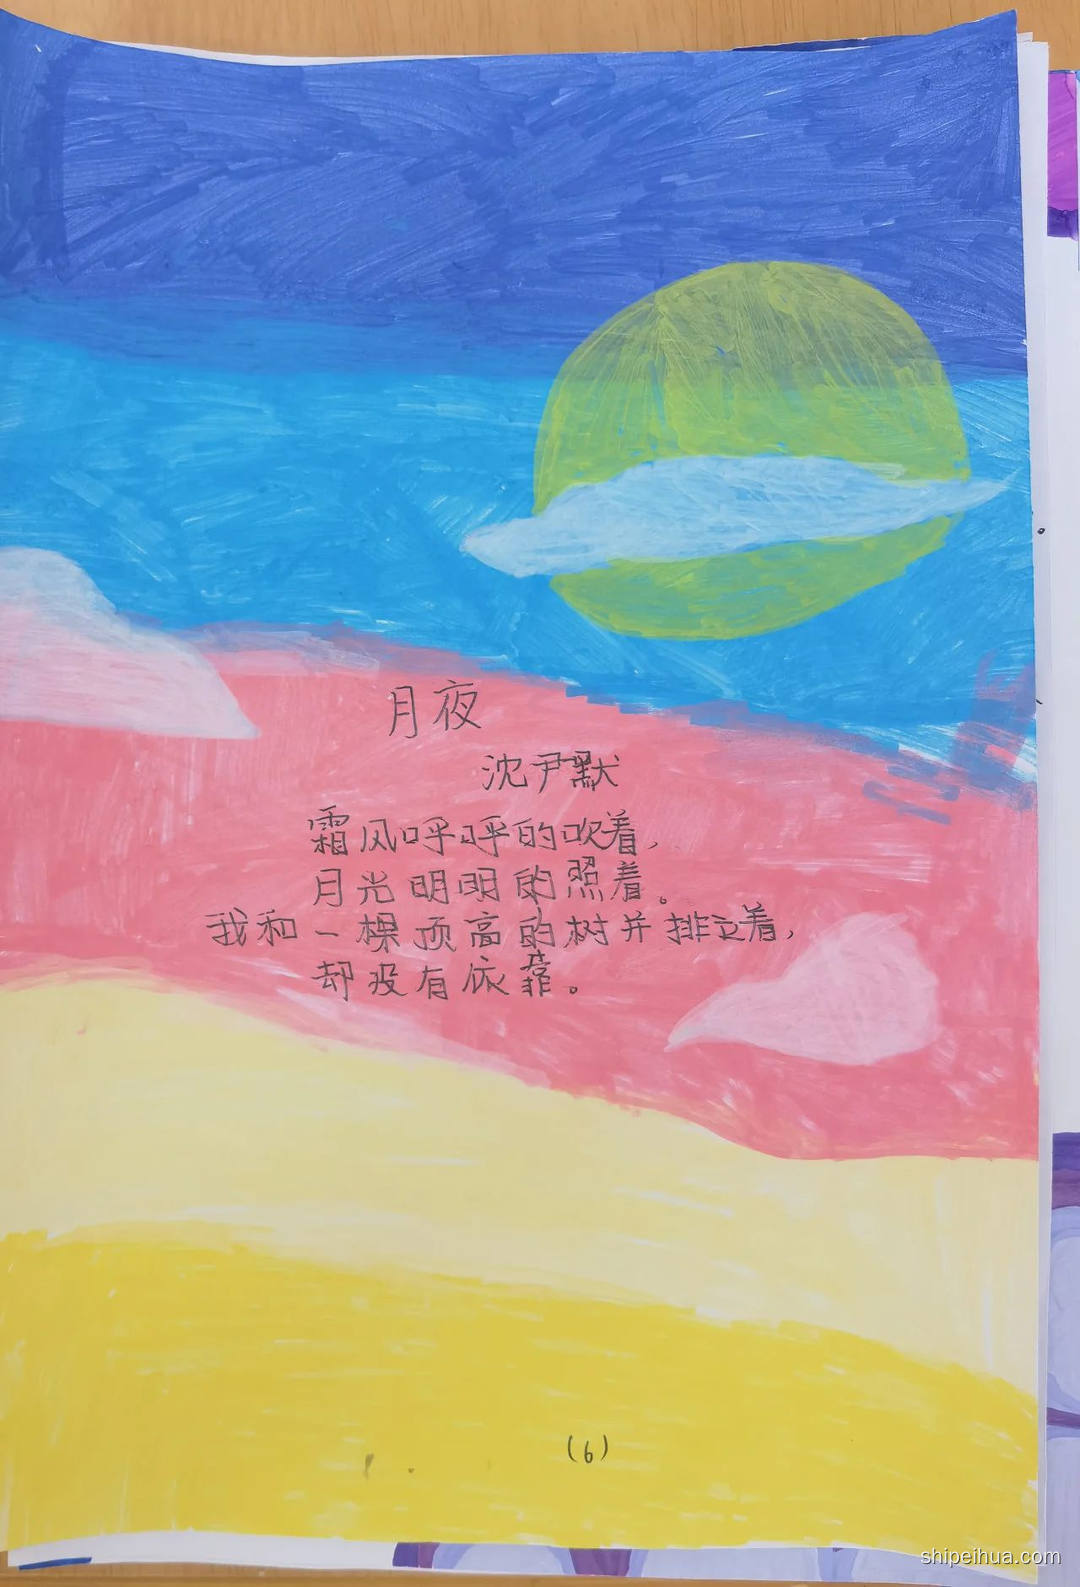 月夜
沈尹默
霜风呼呼的吹着,
月光明明的照着。
我和一棵顶高的树并排立着,
却没有依靠。
(6)
shipeihua.com